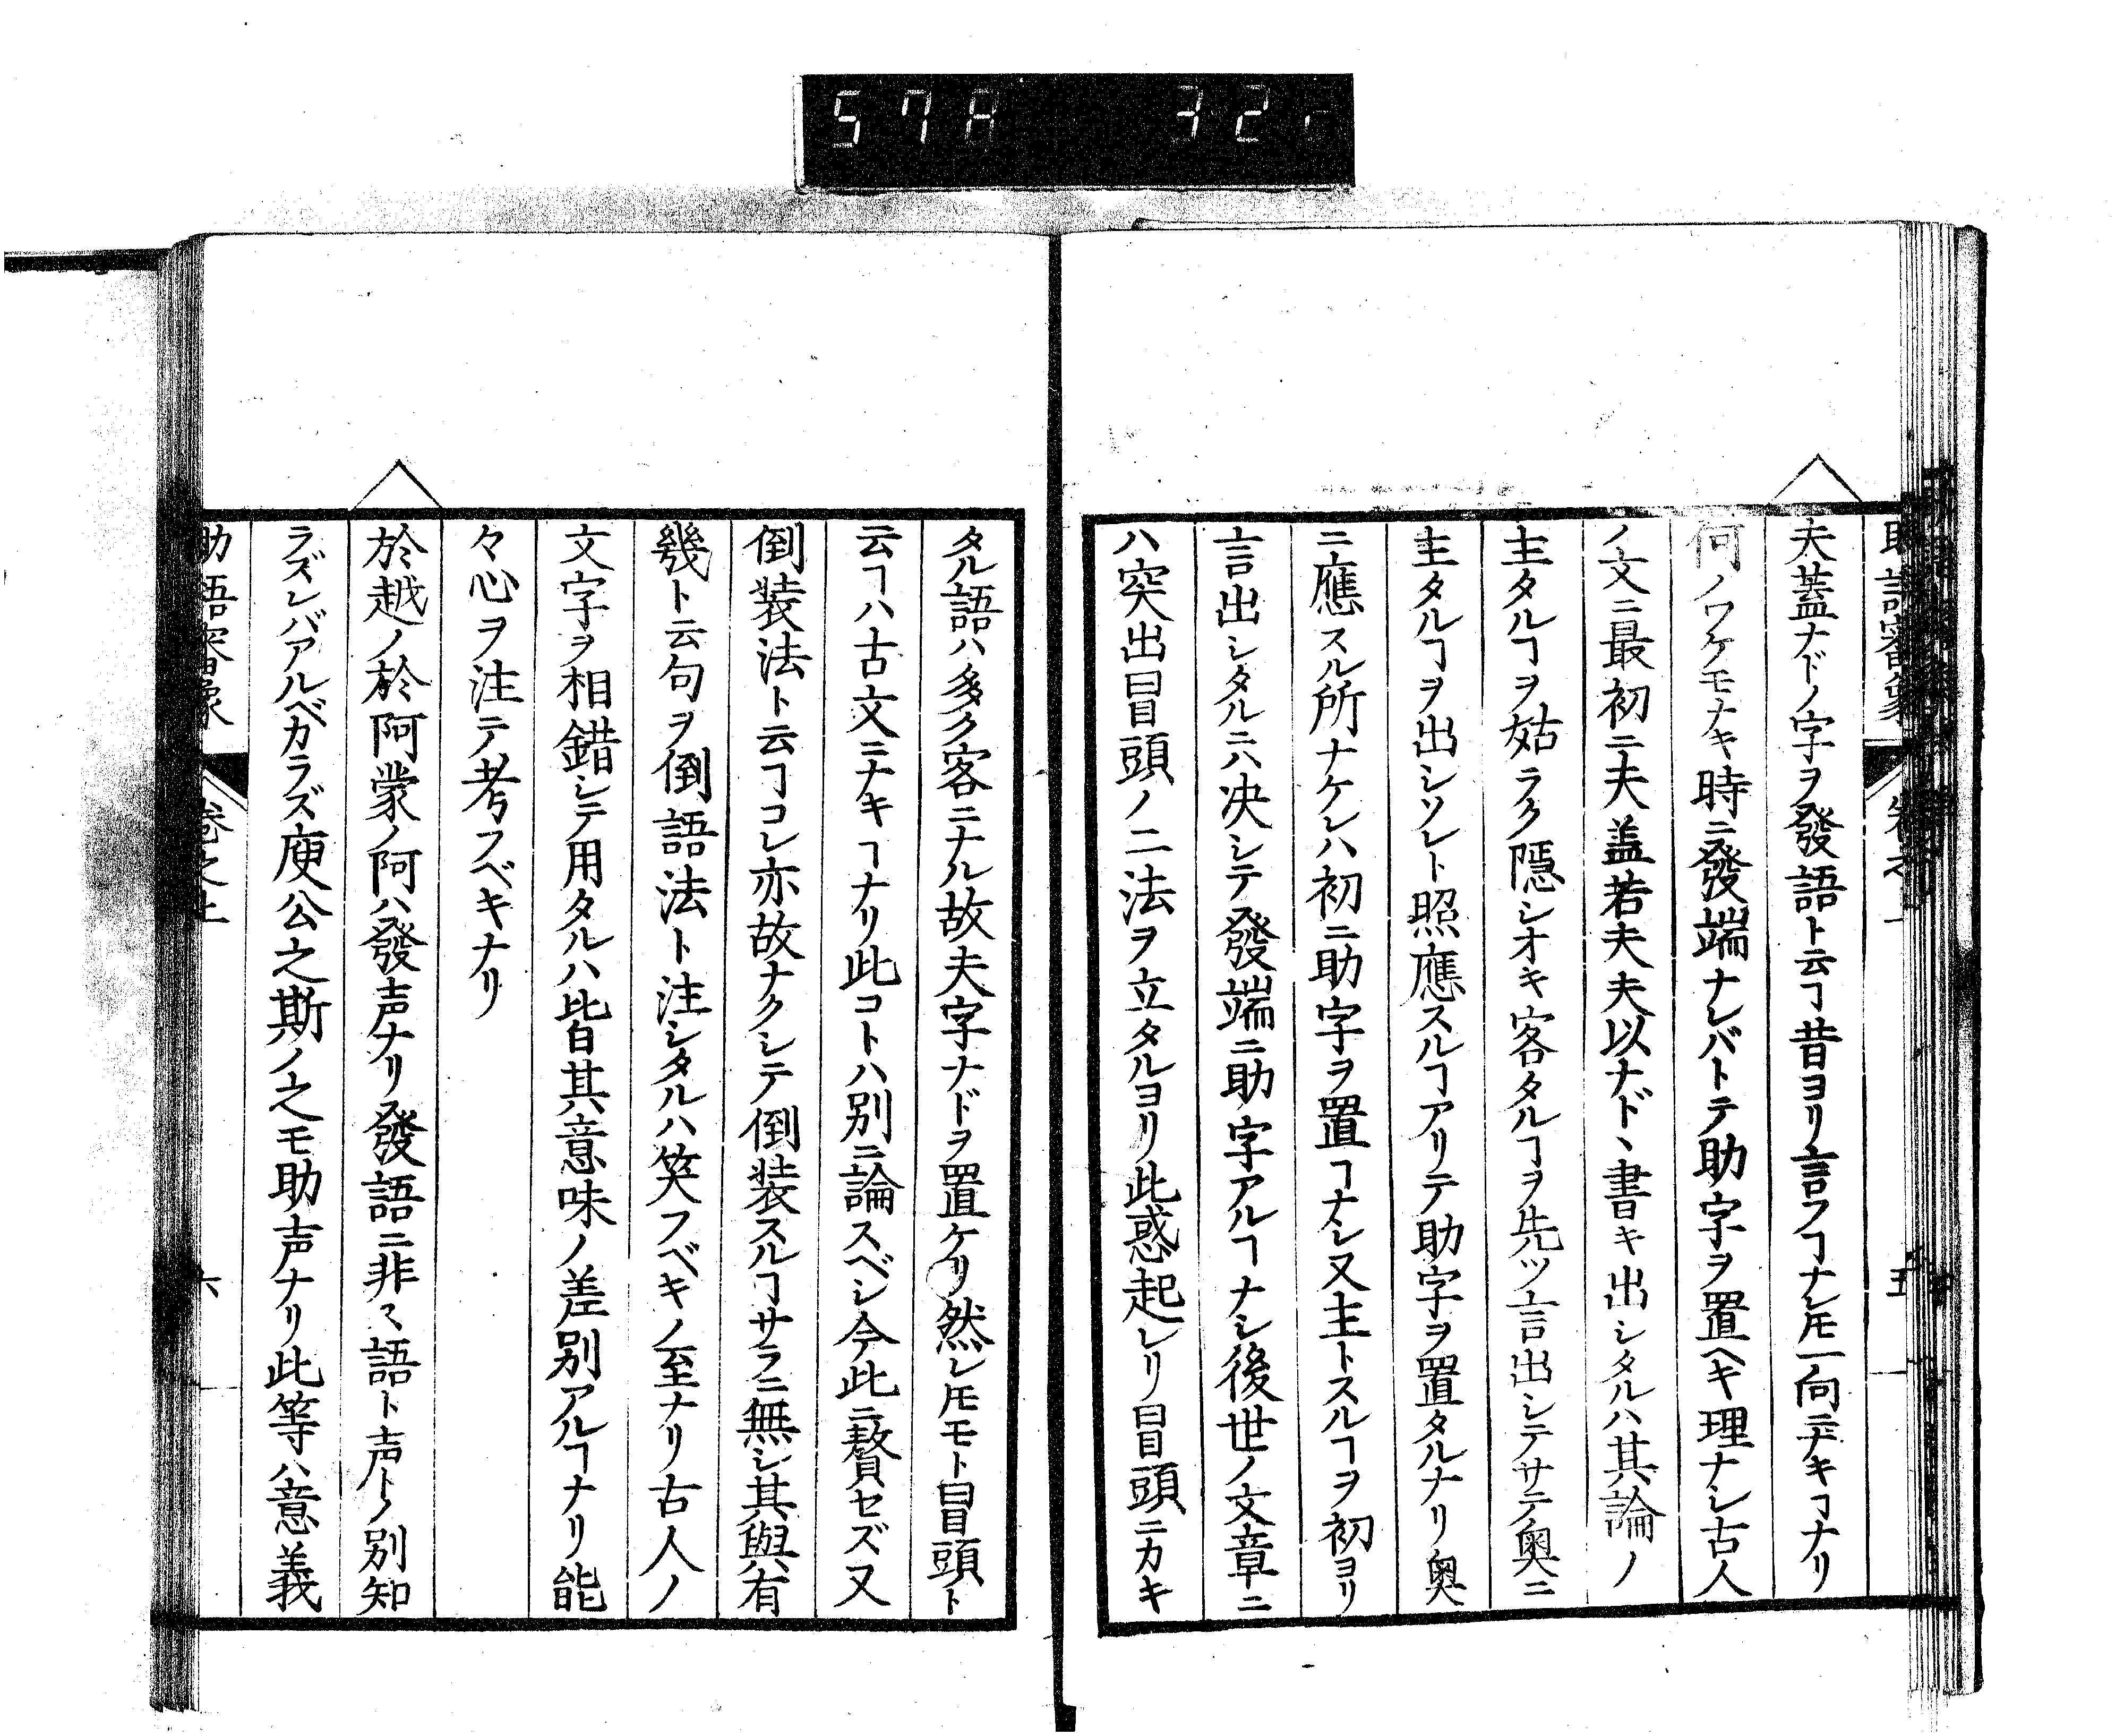 57A 32r
夫蓋ナドノ字ヲ發語ト云ヿ昔ヨリ言フヿナレ𪜈一向ニナキヿナリ
何ノワケモナキ時ニ發端ナレバトテ助字ヲ置ヘキ理ナシ古人
ノ文ニ最初ニ夫蓋若夫夫以ナドヽ書キ出シタルハ其論ノ
主タルヿヲ姑ラク隱シオキ客タルヿヲ先ツ言出シテサテ奧ニ
主タルヿヲ出シソレト照應スルヿアリテ助字ヲ置タルナリ奧
ニ應スル所ナケレハ初ニ助字ヲ置ヿナシ又主トスルヿヲ初ヨリ
言出シタルニハ决シテ發端ニ助字アルヿナシ後世ノ文章ニ
ハ突出冒頭ノ二法ヲ立タルヨリ此惑起レリ冒頭ニカキ
タル語ハ多ク客ニナル故夫字ナドヲ置ケリ然レ𪜈モト冒頭ト
云ヿハ古文ニナキヿナリ此コトハ別ニ論スベシ今此ニ贅セズ又
倒装法ト云ヿコレ亦故ナクシテ倒装スルヿサラニ無シ其與有
幾ト云句ヲ倒語法ト注シタルハ笑フベキノ至ナリ古人ノ
文字ヲ相錯シテ用タルハ皆其意味ノ差別アルヿナリ能
々心ヲ注テ考フベキナリ
於越ノ於阿蒙ノ阿ハ發声ナリ發語ニ非ヌ語ト声トノ別知
ラズンバアルベカラズ庾公之斯ノ之モ助声ナリ此等ハ意義
助語審象 卷之上 六